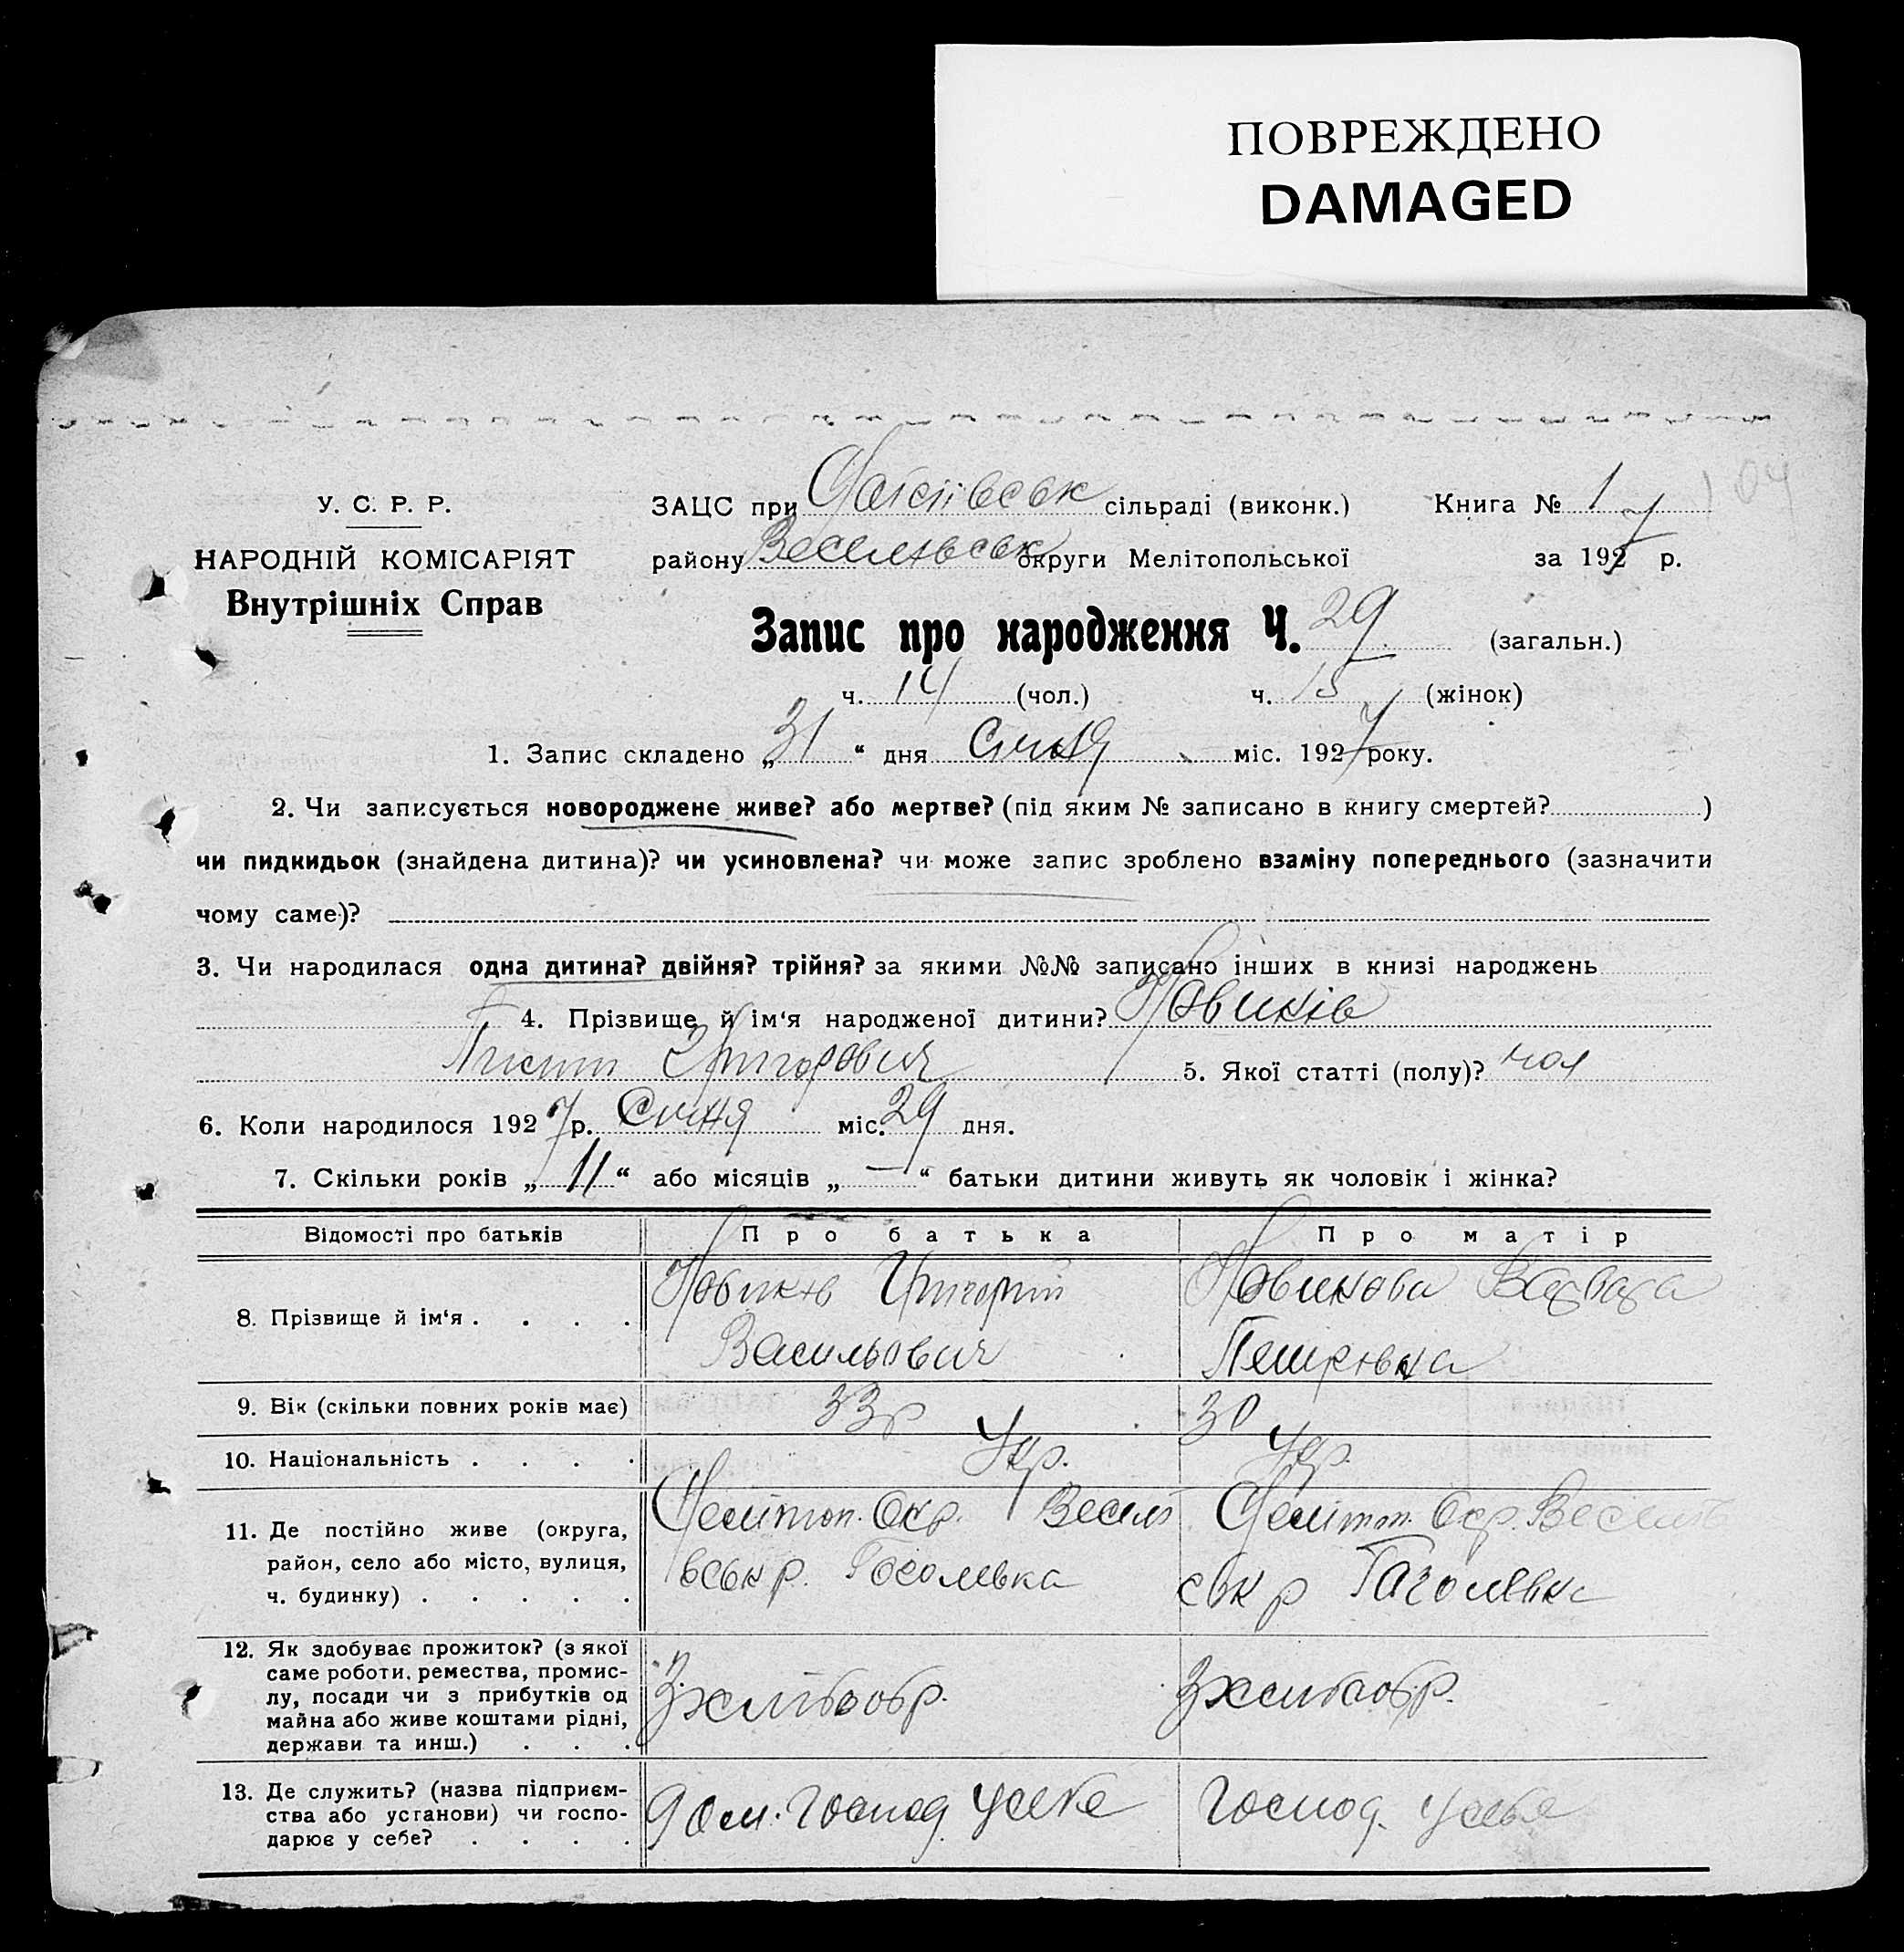 ПОВРЕЖДЕНО
DAMAGED
У. С. Р. Р.
НАРОДНІЙ КОМІСАРІЯТ
Внутрішніх Справ
ЗАЦС при сільраді (виконк.) Книга № 1 104
району Веселівськ округи Мелітопольської за 1927 р.
Запис про народження Ч. 29 (загальн.)
ч. 14 (чол.) ч. 15 (жінок)
1. Запис складено „ 31 “ дня Січня міс. 1927 року.
2. Чи записується новороджене живе? або мертве? (під яким № записано в книгу смертей? )
чи пидкидьок (знайдена дитина)? чи усиновлена? чи може запис зроблено взаміну попереднього (зазначити
чому саме)?
3. Чи народилася одна дитина? двійня? трійня? за якими №№ записано інших в книзі народжень
4. Прізвище й ім‘я народженої дитини? Новиків
Григорович 5. Якої статті (полу)? чол
6. Коли народилося 1927 р. Січня міс. 29 дня.
7. Скільки років „ 11 “ або місяців „ — “ батьки дитини живуть як чоловік і жінка?
Відомості про батьків Про батька Про матір
8. Прізвище й ім‘я . . . . Новиків Григорій Васильович Новикова Варвара Петрівна
9. Вік (скільки повних років має) 33р 30
10. Національність . . . . Укр. Укр.
11. Де постійно живе (округа, район, село або місто, вулиця, ч. будинку) . . . . . Мелітоп. Окр. Веселівськ р. Мелітоп. Окр. Веселівськ р
12. Як здобуває прожиток? (з якої саме роботи, ремества, промислу, посади чи з прибутків од майна або живе коштами рідні, держави та инш.) . . . З хлібообр. З хлібообр.
13. Де служить? (назва підприємства або установи) чи господарює у себе? . . . . Дом. Господ. у себе Господ. у себе